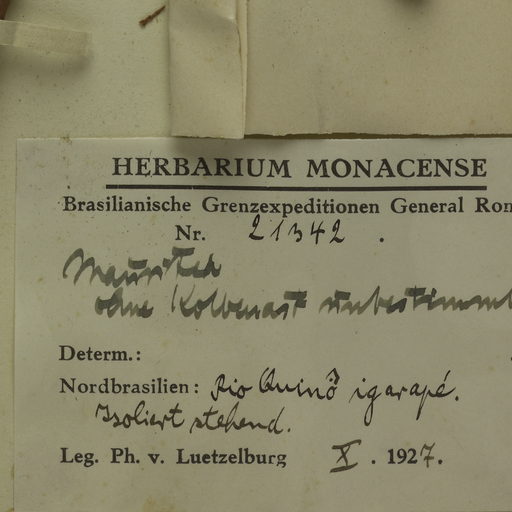 HERBARIUM MONACENSE
Brasilianische Grenzexpeditionen General Ron
Nr. 21342 .
Mauritia
ohne Kolbenast unbestimmb
Determ.:
Nordbrasilien: Rio Quinô igarapé.
Isoliert stehend.
Leg. Ph. v. Luetzelburg X . 1927.